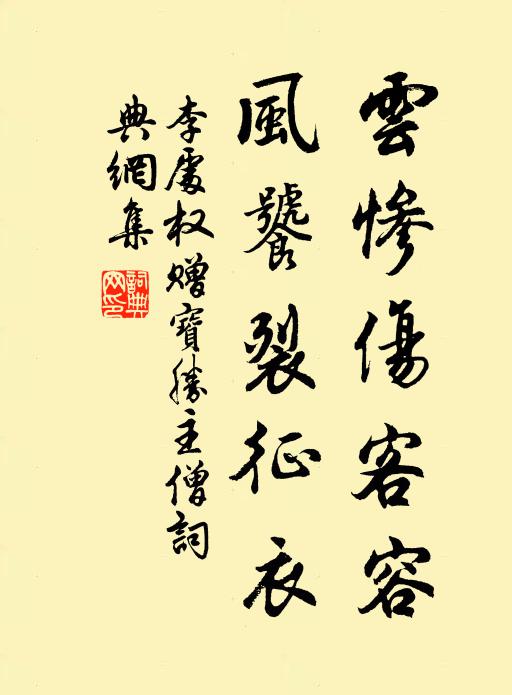 雲慘傷客容
風饕裂征衣
李處权贈寶勝主僧詞
典網集
詞典网印